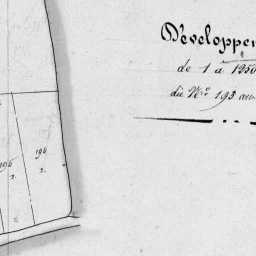 Developpe
de 1 à 1250
du Nº 195 au
196
2.
194
2.